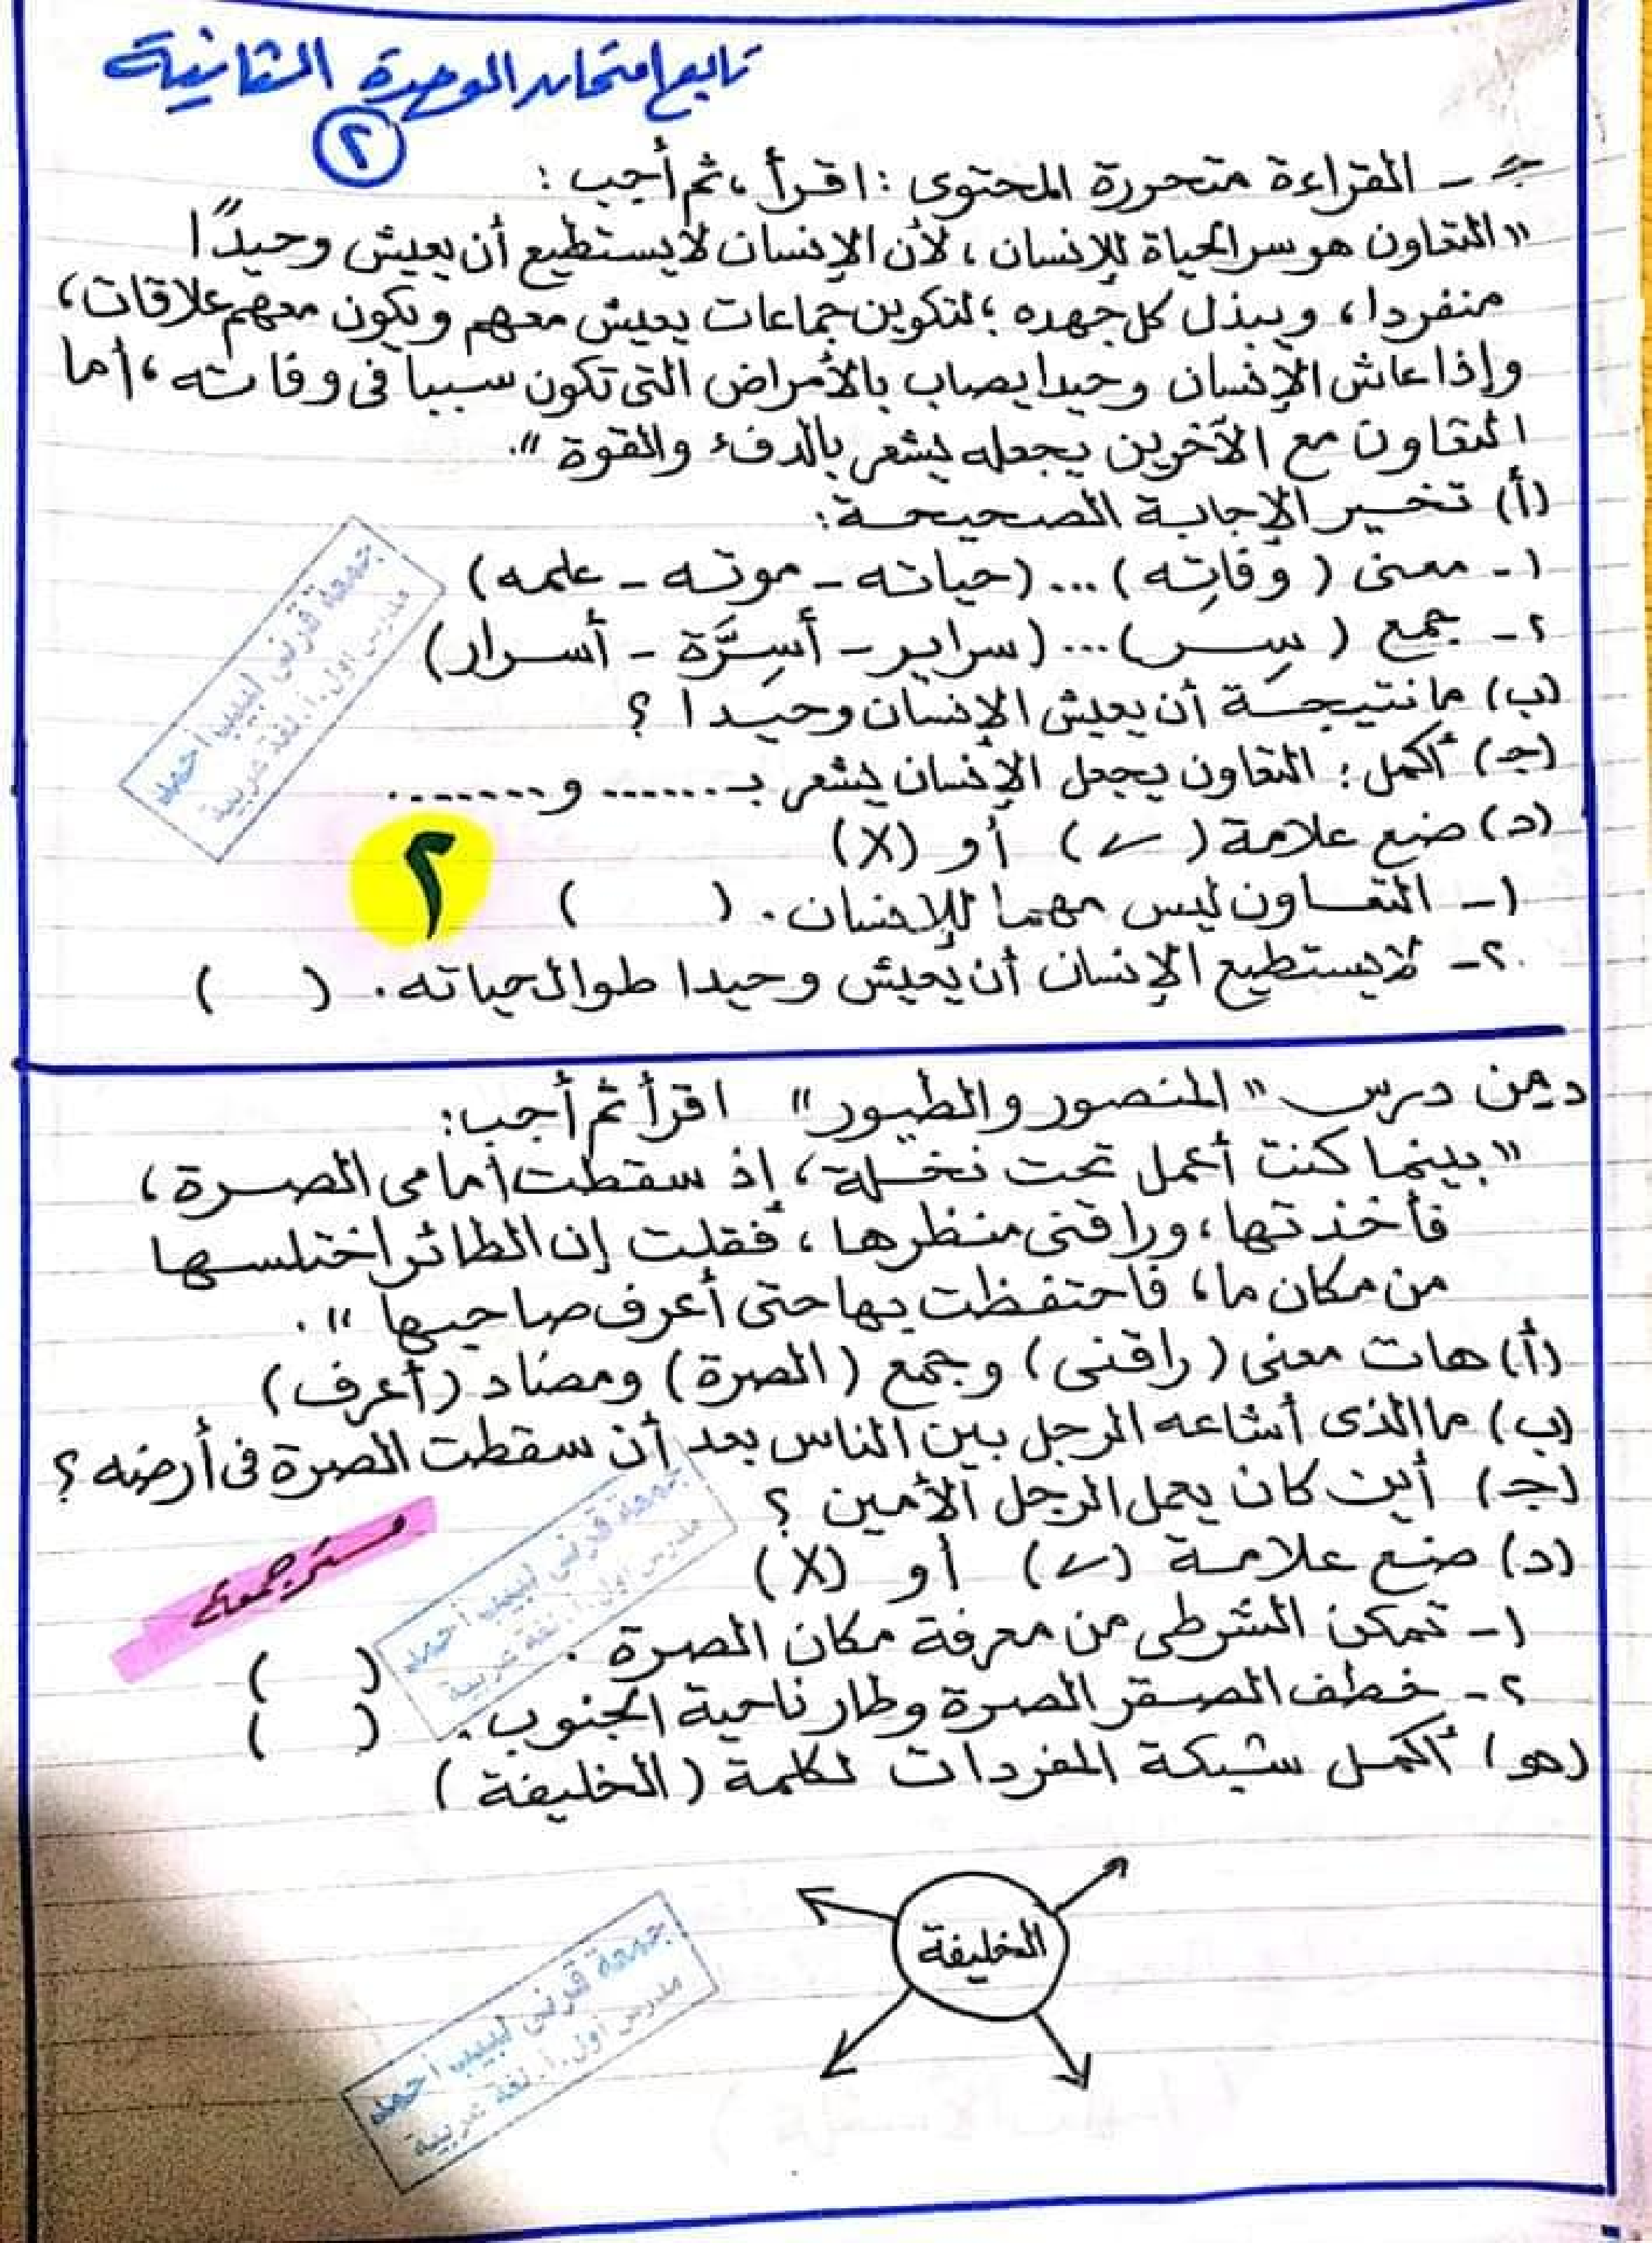 تابع امتحان الوحدة الثانية
٢
جـ - القراءة متحررة المحتوى : اقرأ ، ثم أجب :
"التعاون هو سر الحياة للإنسان ، لأن الإنسان لا يستطيع أن يعيش وحيدًا
منفردا ، ويبذل كل جهده ؛ لتكوين جماعات يعيش معهم ويكون معهم علاقات ،
وإذا عاش الإنسان وحيدا يصاب بالأمراض التى تكون سببا فى وفاته ، أما
التعاون مع الآخرين يجعله يشعر بالدفء والقوة ".
(أ) تخير الإجابة الصحيحة :
١- معنى ( وفاتِه ) ... (حياته - موته - علمه)
٢- جمع ( سِر ) ... (سراير - أسِرَّة - أسرار)
(ب) ما نتيجة أن يعيش الإنسان وحيدا ؟
(جـ) أكمل : التعاون يجعل الإنسان يشعر بـ ....... و ........
(د) ضع علامة (✓) أو (X)
١- التعاون ليس مهما للإنسان . ( )
٢- لا يستطيع الإنسان أن يعيش وحيدا طوال حياته . ( )
جمعة قرنى لبيب أحمد
مدرس أول .أ. لغة عربية
٢
د- من درس "المنصور والطيور" اقرأ ثم أجب :
"بينما كنت أعمل تحت نخلة ، إذ سقطت أمامى الصرة ،
فأخذتها ، وراقنى منظرها ، فقلت إن الطائر اختلسها
من مكان ما ، فاحتفظت بها حتى أعرف صاحبها ".
(أ) هات معنى (راقنى) وجمع (الصرة) ومضاد (أعرف)
(ب) ما الذى أشاعه الرجل بين الناس بعد أن سقطت الصرة فى أرضه ؟
(جـ) أين كان يعمل الرجل الأمين ؟
(د) ضع علامة (✓) أو (X)
١- تمكن الشرطى من معرفة مكان الصرة . ( )
٢- خطف الصقر الصرة وطار ناحية الجنوب . ( )
(هـ) أكمل شبكة المفردات لكلمة (الخليفة)
مستر جمعة
جمعة قرنى لبيب أحمد
مدرس أول .أ. لغة عربية
الخليفة
جمعة قرنى لبيب أحمد
مدرس أول .أ. لغة عربية